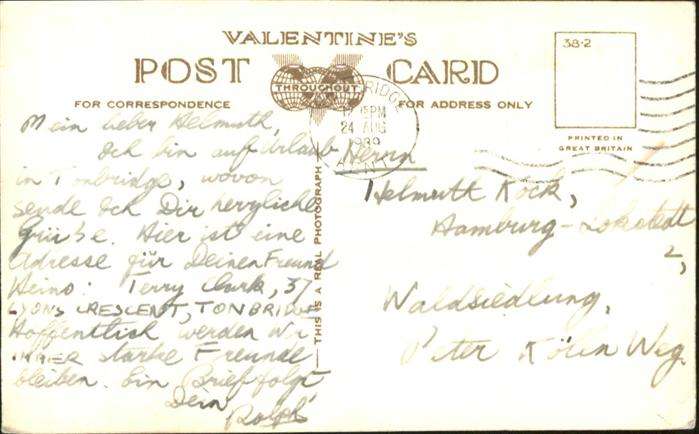 VALENTINE'S
POST CARD
THROUGHOUT
FOR CORRESPONDENCE
FOR ADDRESS ONLY
38-2
PRINTED IN
GREAT BRITAIN
BRIDGE
PM
24 AUG
1939
THIS IS A REAL PHOTOGRAPH
Mein lieber Helmuth,
Ich bin auf Urlaub
in Tonbridge, wovon
sende Ich Dir herzliche
Grüße. Hier ist eine
Adresse für Deinen Freund
Heino: Terry Clark, 37
LYONS CRESCENT, TONBRIDGE
Hoffentlich werden Wir
IMMER starke Freunde
bleiben. Ein Brief folgt
Dein
Ralph
Herrn
Helmuth Kock,
Hamburg-Lokstedt
2,
Waldsiedlung,
Peter Kölln Weg.